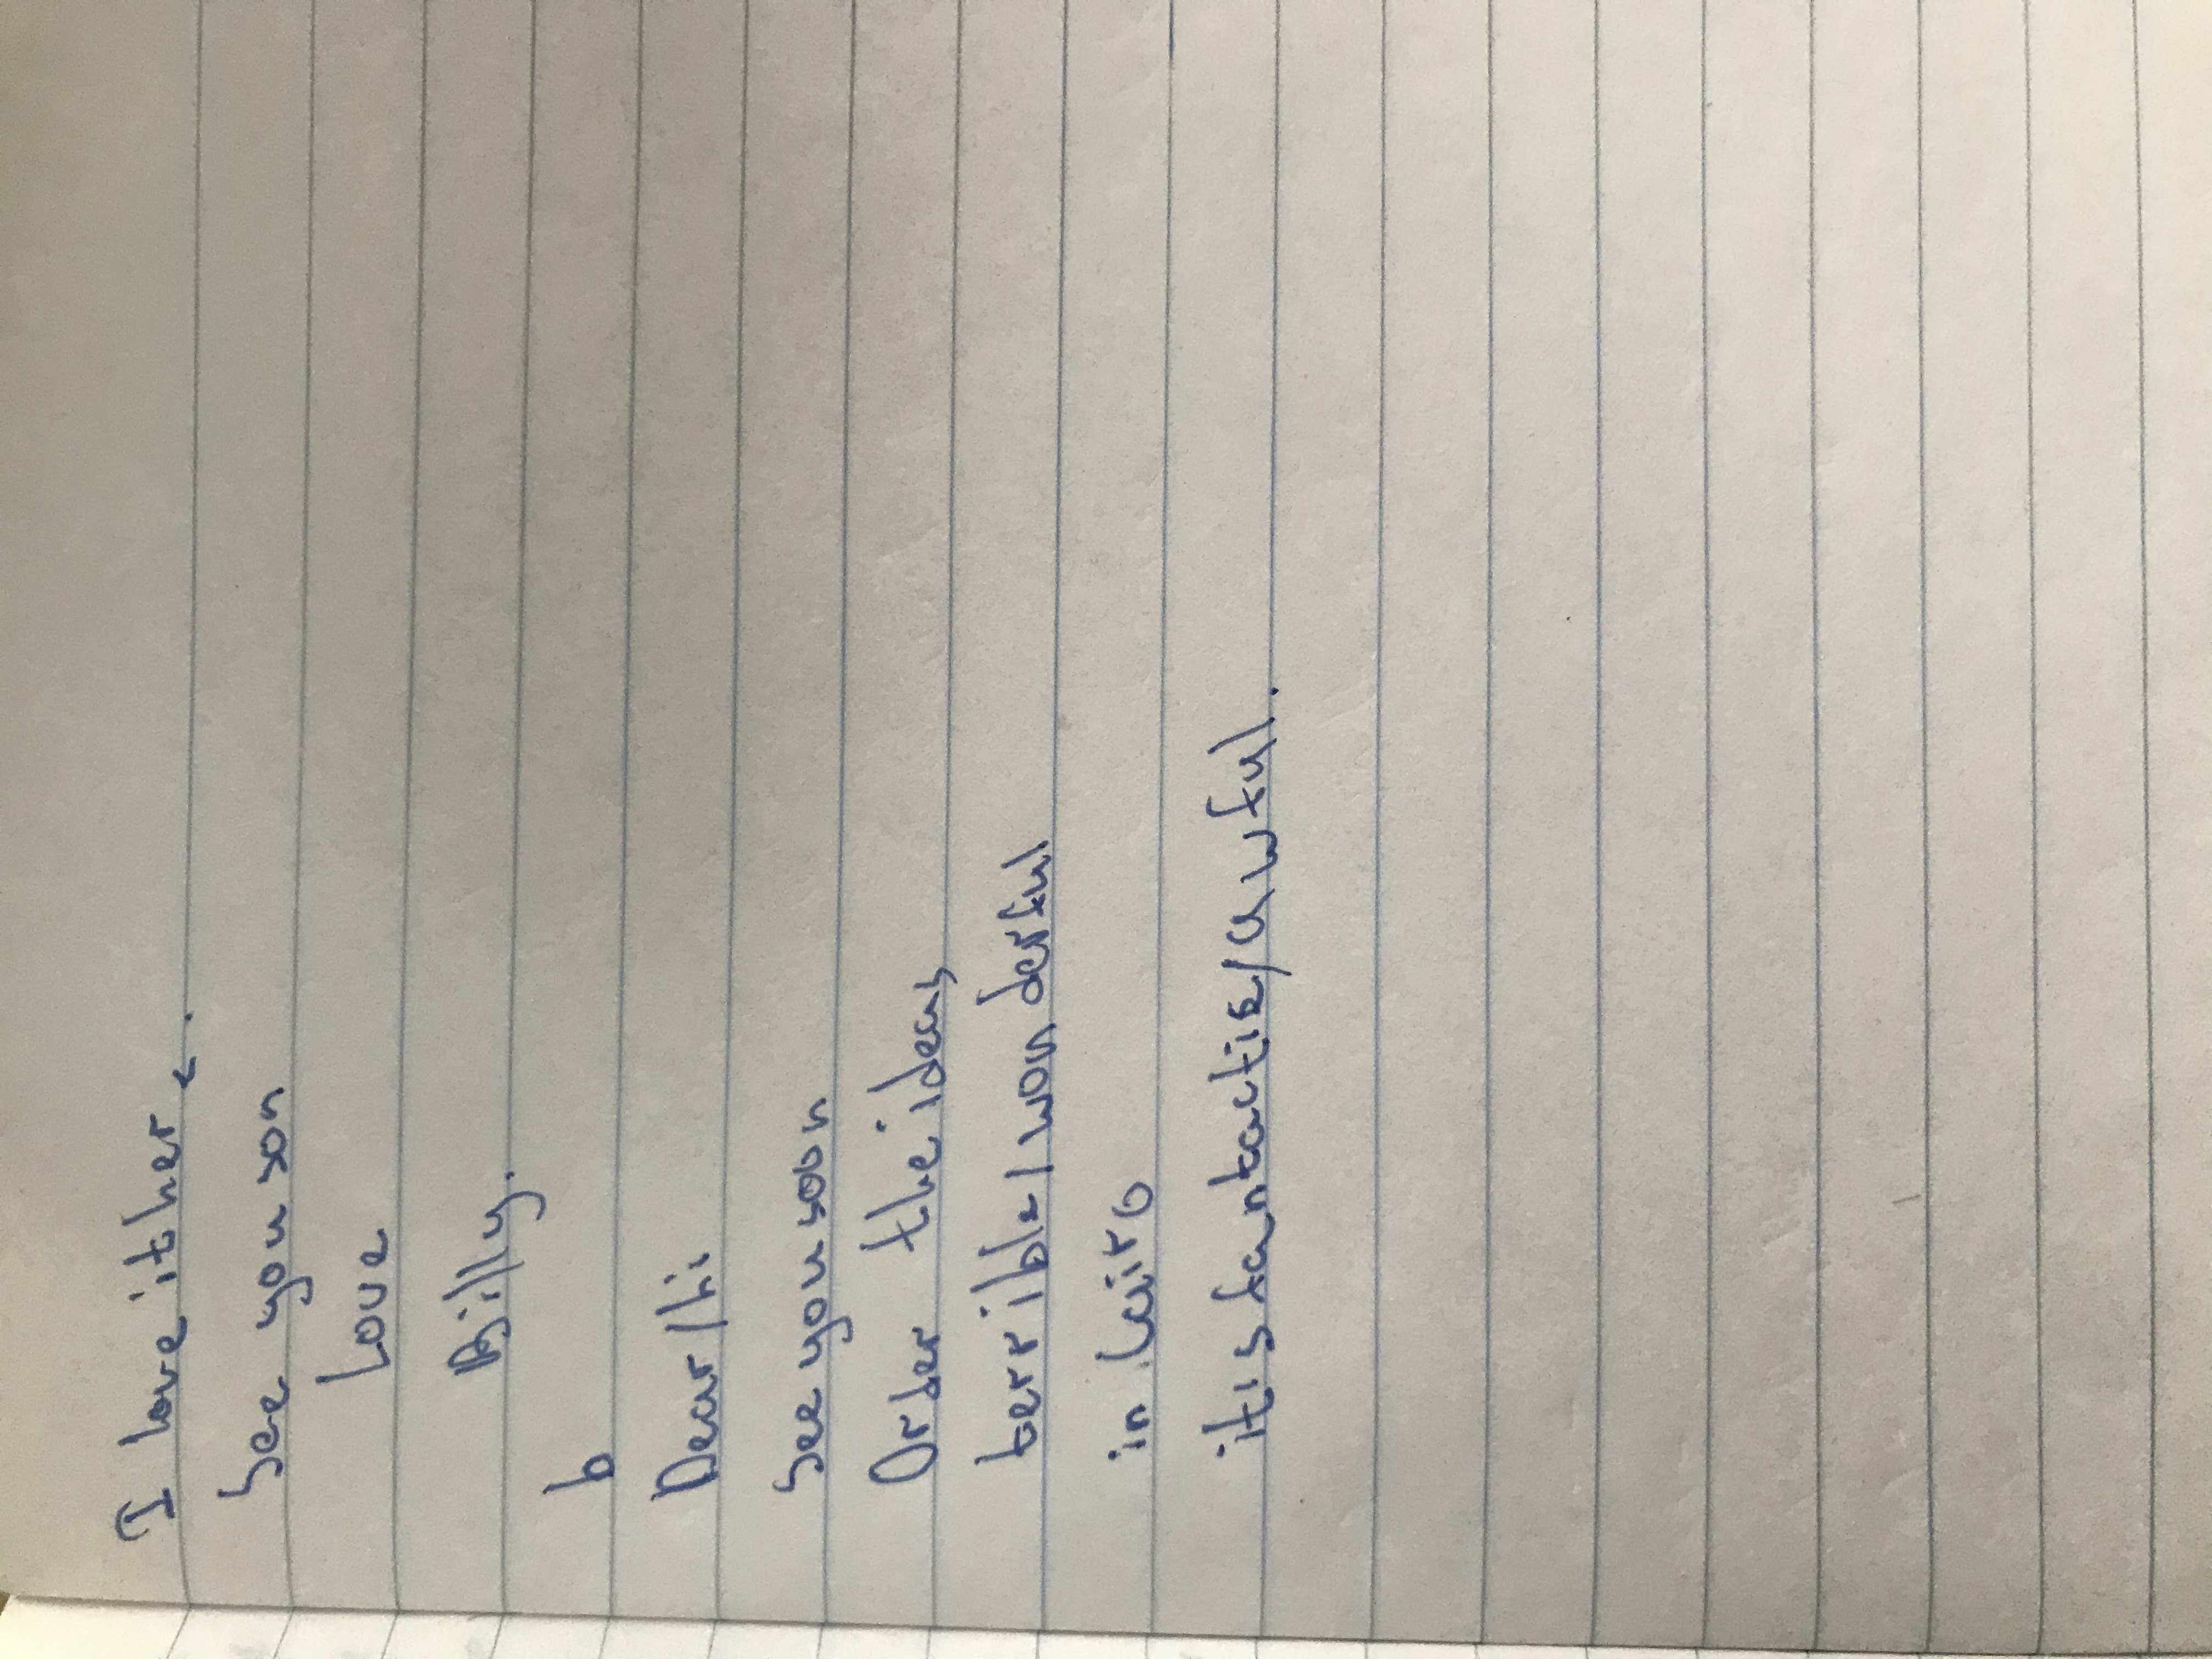 I love it here.
See you son
Love
Billy.
b
Dear / hi
see you soon
Order the ideas
terrible / wonderful
in Cairo
it is fantactic / awful.